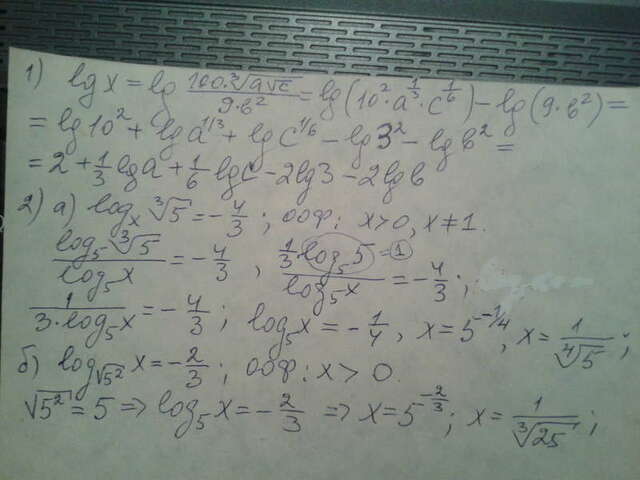 1) lg x = lg 100·∛(a√c) / 9·b² = lg(10²·a^(1/3)·c^(1/6)) − lg(9·b²) =
= lg10² + lg a^(1/3) + lg c^(1/6) − lg3² − lg b² =
= 2 + 1/3 lg a + 1/6 lg c − 2lg3 − 2lg b
2) а) logₓ ∛5 = −4/3 ; ООФ: x>0, x≠1.
log₅ ∛5 / log₅x = −4/3 , 1/3·log₅5 =1 / log₅x = −4/3 ;
1 / 3·log₅x = −4/3 ; log₅x = −1/4 , x = 5^(−1/4) , x = 1/∜5 ;
б) log_√5² x = −2/3 ; ООФ: x > 0.
√5² = 5 => log₅x = −2/3 => x = 5^(−2/3) ; x = 1/∛25 ;